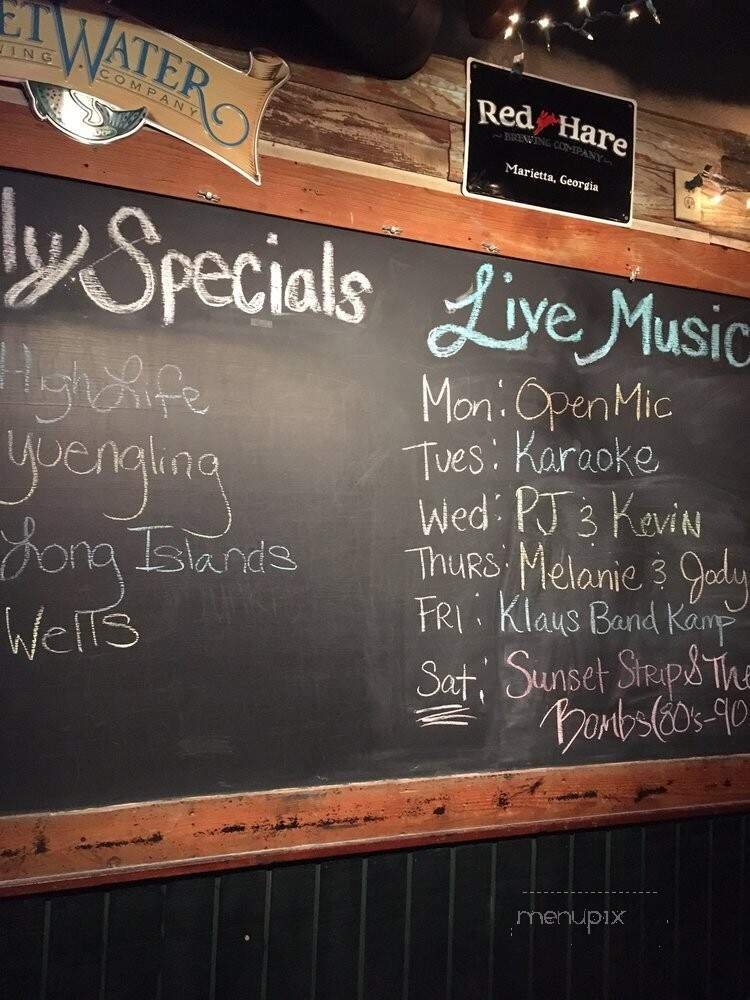 ETWATER
WING COMPANY
Red Hare
~ BREWING COMPANY ~
Marietta, Georgia
ly Specials
High Life
Yuengling
Long Islands
Wells
Live Music
Mon: Open Mic
Tues: Karaoke
Wed: PJ & Kevin
Thurs: Melanie & Jody
FRI: Klaus Band Kamp
Sat: Sunset Strip & The
Bombs (80's-90
menupix